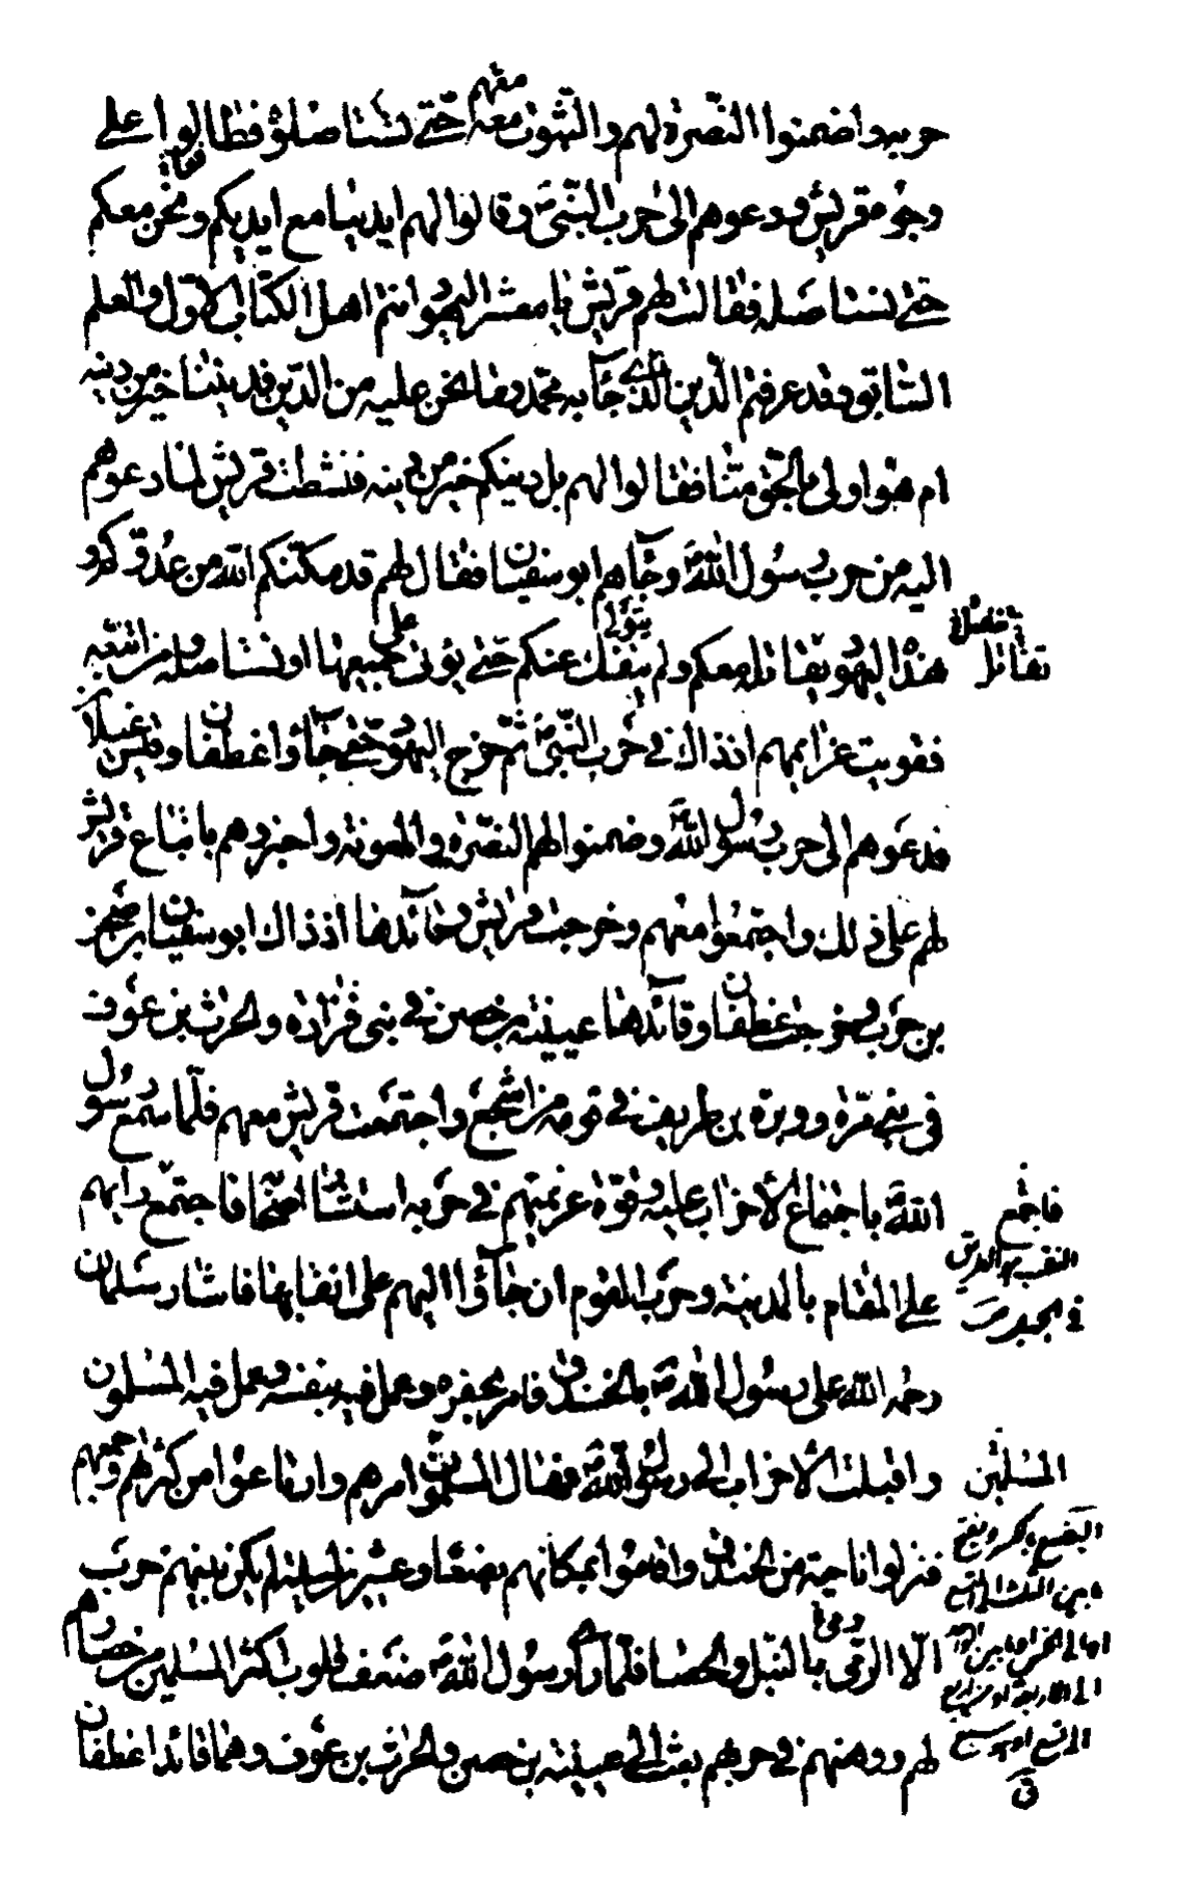 حربه واضمنوا النصرة لهم والثبوت معه معهم حتى تستأصلوه فطافوا على
وجوه قريش ودعوهم الى حرب النبي ص وقالوا لهم ايدينا مع ايديكم ونحن معكم
حتى نستاصله فقالت لهم قريش يا معشر اليهود انتم اهل الكتاب الاول والعلم
السابق وقد عرفتم الدين الذي جآء به محمد وما نحن عليه من الدين فديننا خير من دينه
ام هو اولى بالحق منا فقالوا لهم بل دينكم خير من دينه فنشطت قريش لما دعوهم
اليه من حرب رسول الله ص وجآءهم ابو سفيان فقال لهم قد مكنكم الله من عدوكم و
هذه اليهود يقاتله معكم ولم ينفك عنكم حتى يؤتى على جميعها او نستاصله ومن اتبعه
تقاتل
فقويت عزايمهم اذ ذاك في حرب النبي ص ثم خرج اليهود حتى جآؤا غطفان وقيس غيلان
فدعوهم الى حرب رسول الله ص وضمنوا لهم النصرة والمعونة واخبروهم باتباع قريش
لهم على ذلك واجتمعوا معهم وخرجت قريش وقائدها اذ ذاك ابو سفيان صخر
بن حرب وخرجت غطفان وقائدها عيينة بن حصن في بني فزارة والحرث بن عوف
في بني مرة ووبرة بن طريف في قومه من اشجع واجتمعت قريش معهم فلما سمع رسول
الله ص باجتماع الاحزاب عليه وقوة عزيمتهم في حربه استشار اصحابه فاجتمع رايهم
فاجمع
على المقام بالمدينة وحرب القوم ان جآؤا اليهم على انقابها فاشار سلمان
رحمه الله على رسول الله ص بالخندق فامر بحفره وعمل فيه بنفسه وعمل فيه المسلمون
واقبلت الاحزاب الى رسول الله ص فهال المسلمون امرهم وارتاعوا من كثرهم وجمعهم
المسلمين
فنزلوا ناحية من الخندق واقاموا بمكانهم بضعا وعشرين ليلة لم يكن بينهم حرب
الا الرمي بالنبل والحصا فلما راى رسول الله ص ضعف قلوب اكثر المسلمين من حصارهم
لهم ووهنهم في حربهم بعث الى عيينة بن حصن والحرث بن عوف وهما قائدا غطفان